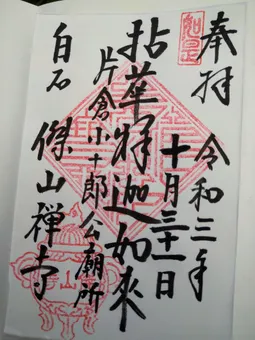 奉拝
令和三年
十月三十一日
拈華釋迦如來
片倉小十郎公廟所
白石
傑山禅寺
如是